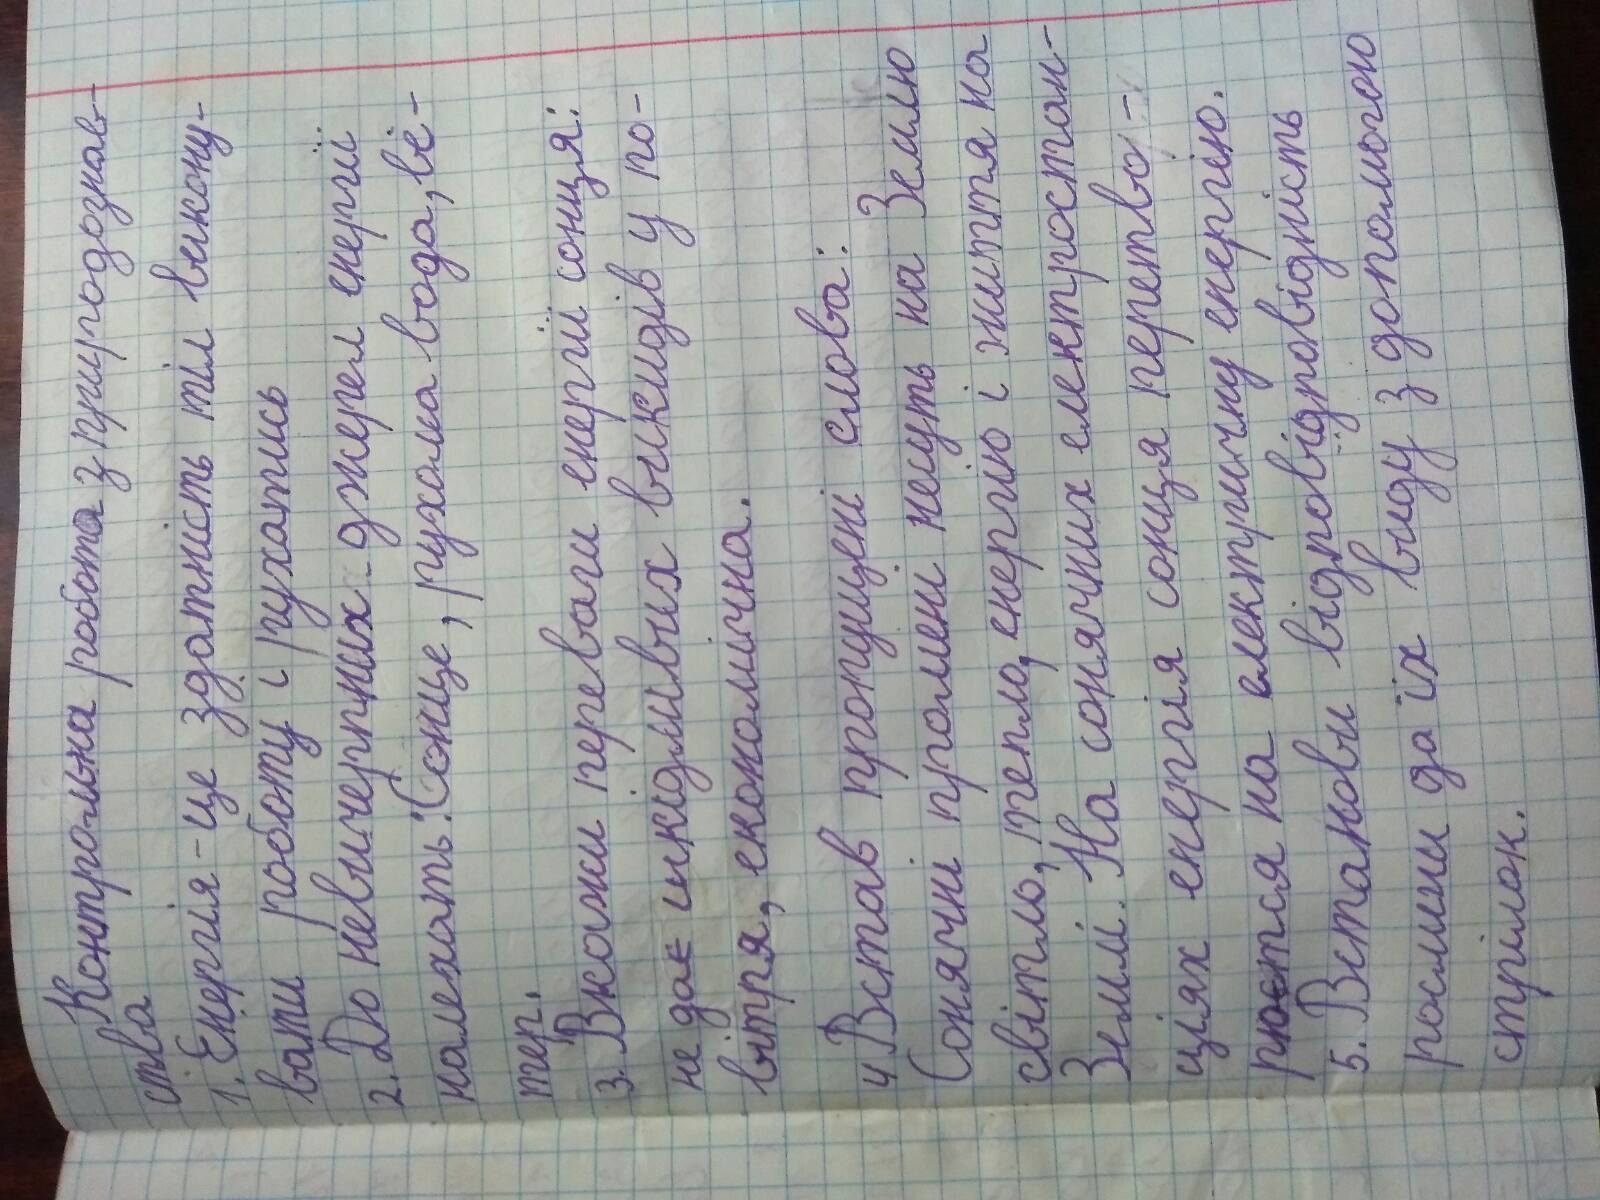 Контрольна робота з природознав-
ства
1. Енергія - це здатність тіл викону-
вати роботу і рухатись
2. До невичерпних джерел енергії
належать: Сонце, рухома вода, ві-
тер.
3. Вкажи переваги енергії сонця:
не дає шкідливих викидів у по-
вітря, економічна.
4 Встав пропущені слова:
Сонячні промені несуть на Землю
світло, тепло, енергію і життя на
Землі. На сонячних електростан-
ціях енергія сонця перетво-
рюєтся на електричну енергію.
5. Встанови відповідповідність
рослини да їх виду з допомогою
стрілок.